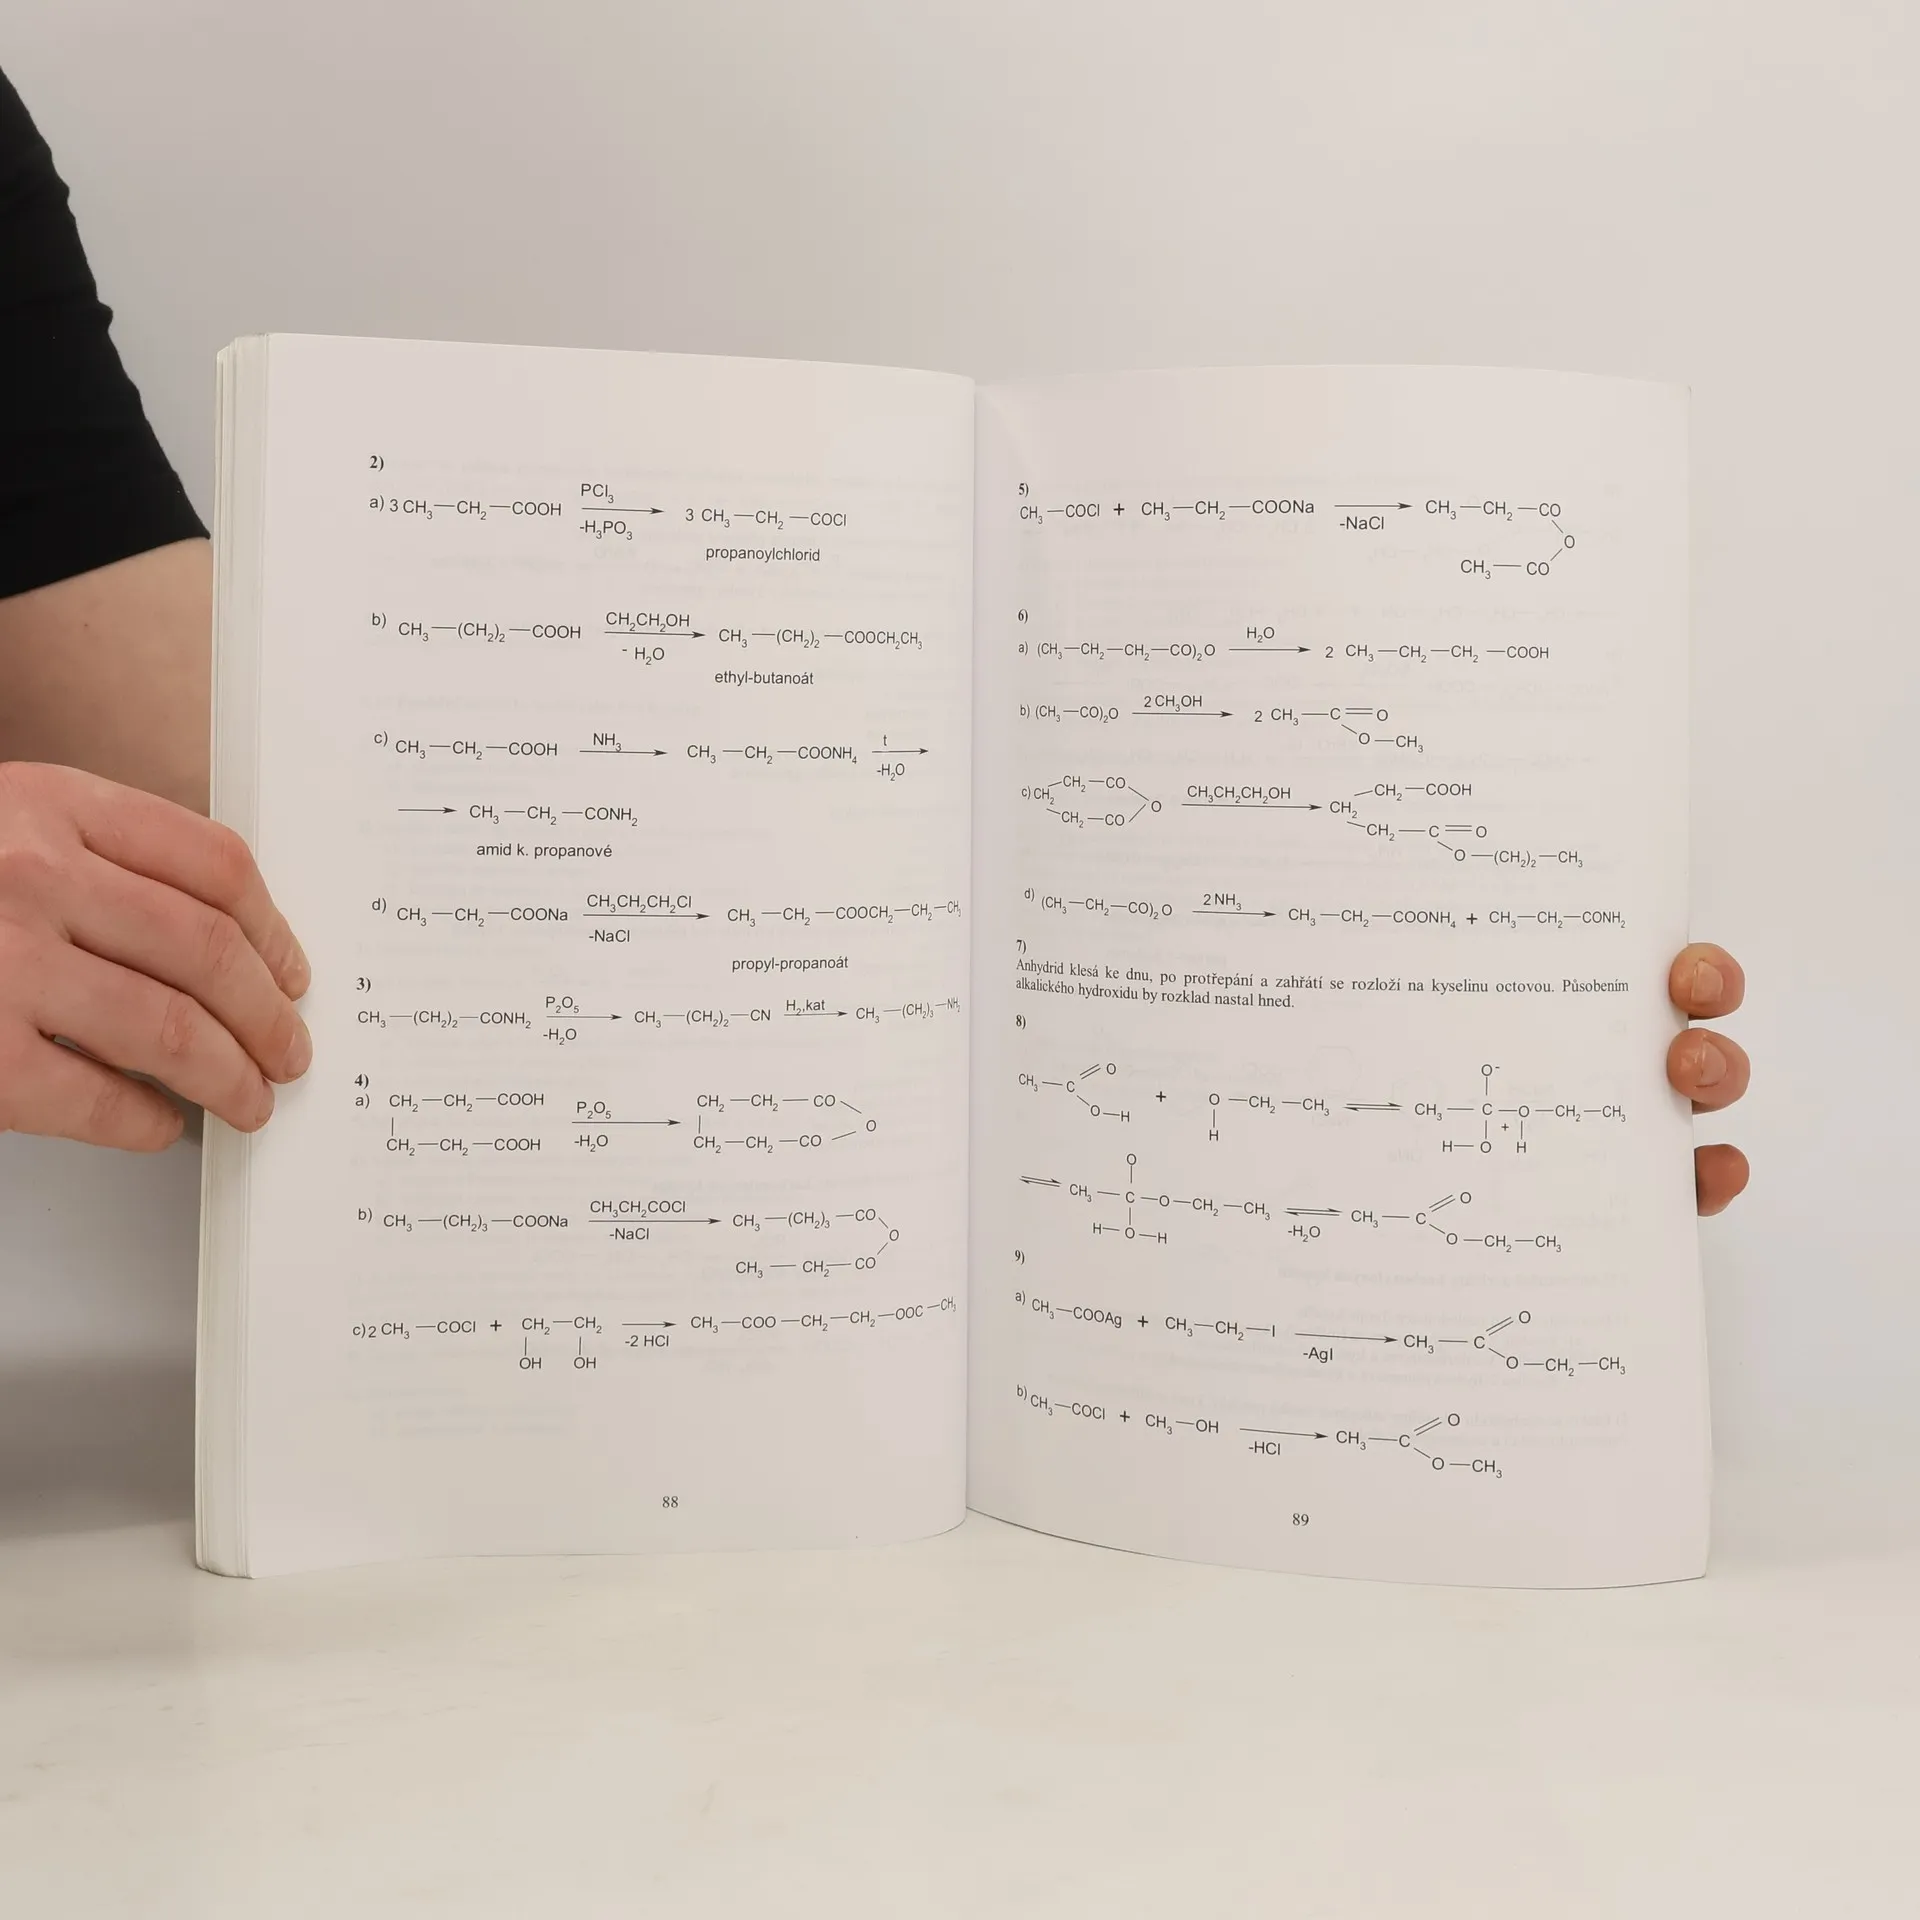 2)
a) 3 CH₃—CH₂—COOH PCl₃ -H₃PO₃ 3 CH₃—CH₂—COCl
propanoylchlorid
b) CH₃—(CH₂)₂—COOH CH₂CH₂OH - H₂O CH₃—(CH₂)₂—COOCH₂CH₃
ethyl-butanoát
c) CH₃—CH₂—COOH NH₃ CH₃—CH₂—COONH₄ t -H₂O
CH₃—CH₂—CONH₂
amid k. propanové
d) CH₃—CH₂—COONa CH₃CH₂CH₂Cl -NaCl CH₃—CH₂—COOCH₂—CH₂—CH₃
propyl-propanoát
3)
CH₃—(CH₂)₂—CONH₂ P₂O₅ -H₂O CH₃—(CH₂)₂—CN H₂,kat CH₃—(CH₂)₃—NH₂
4)
a) CH₂—CH₂—COOH P₂O₅ CH₂—CH₂—CO
O
CH₂—CH₂—COOH -H₂O CH₂—CH₂—CO
b) CH₃—(CH₂)₃—COONa CH₃CH₂COCl -NaCl CH₃—(CH₂)₃—CO
O
CH₃—CH₂—CO
c) 2 CH₃—COCl + CH₂—CH₂ -2 HCl CH₃—COO—CH₂—CH₂—OOC—CH₃
OH OH
88
5)
CH₃—COCl + CH₃—CH₂—COONa -NaCl CH₃—CH₂—CO
O
CH₃—CO
6)
a) (CH₃—CH₂—CH₂—CO)₂O H₂O 2 CH₃—CH₂—CH₂—COOH
b) (CH₃—CO)₂O 2 CH₃OH 2 CH₃—C=O
O—CH₃
CH₂—CO CH₂—COOH
c) CH₂ O CH₃CH₂CH₂OH CH₂
CH₂—CO CH₂—C=O
O—(CH₂)₂—CH₃
d) (CH₃—CH₂—CO)₂O 2 NH₃ CH₃—CH₂—COONH₄ + CH₃—CH₂—CONH₂
7)
Anhydrid klesá ke dnu, po protřepání a zahřátí se rozloží na kyselinu octovou. Působením
alkalického hydroxidu by rozklad nastal hned.
8)
O O-
CH₃—C + O—CH₂—CH₃ CH₃—C—O—CH₂—CH₃
O—H H H—O + H
O O
CH₃—C—O—CH₂—CH₃ -H₂O CH₃—C
H—O—H O—CH₂—CH₃
9)
a) CH₃—COOAg + CH₃—CH₂—I -AgI CH₃—C O
O—CH₂—CH₃
b) CH₃—COCl + CH₃—OH -HCl CH₃—C O
O—CH₃
89